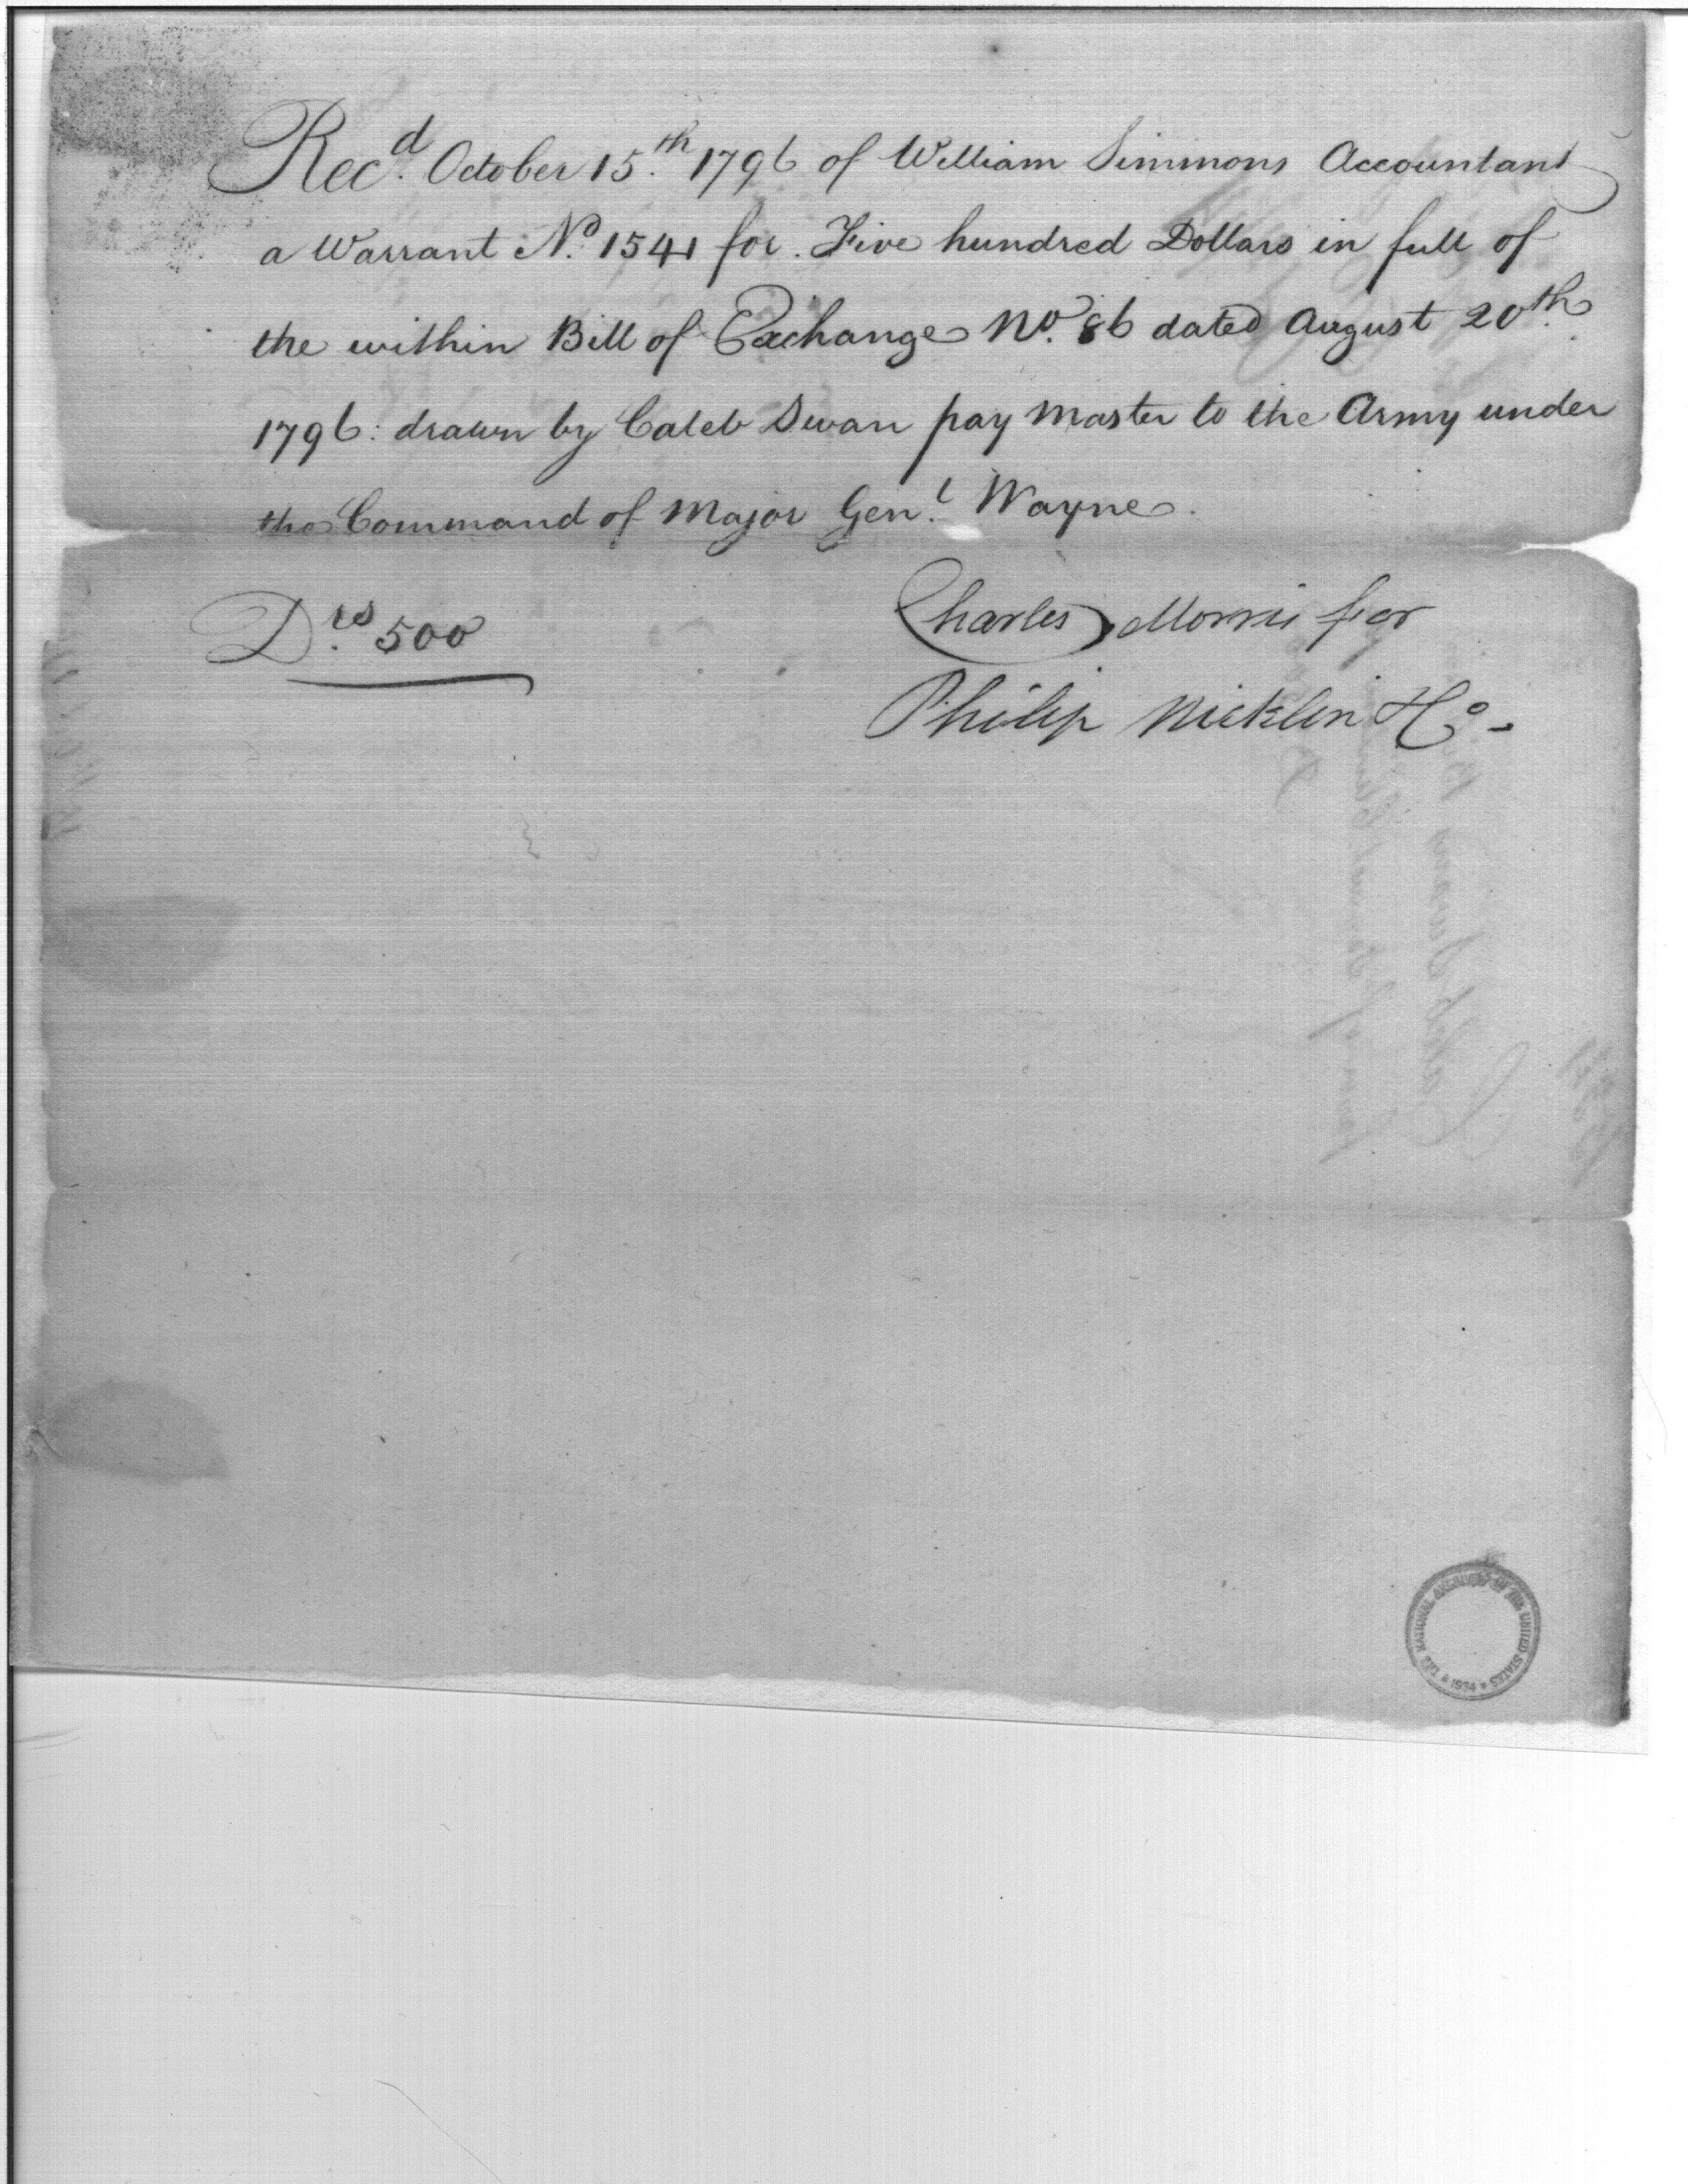 Recd. October 15th. 1796 of William Simmons Accountant
a Warrant No. 1541 for. Five hundred Dollars in full of
the within Bill of Exchange No. 86 dated August 20th.
1796: drawn by Caleb Swan pay Master to the Army under
the Command of Major Genl. Wayne.
Drs. 500
Charles Morris for
Philip Nicklin & Co.
THE NATIONAL ARCHIVES OF THE UNITED STATES * 1934 *